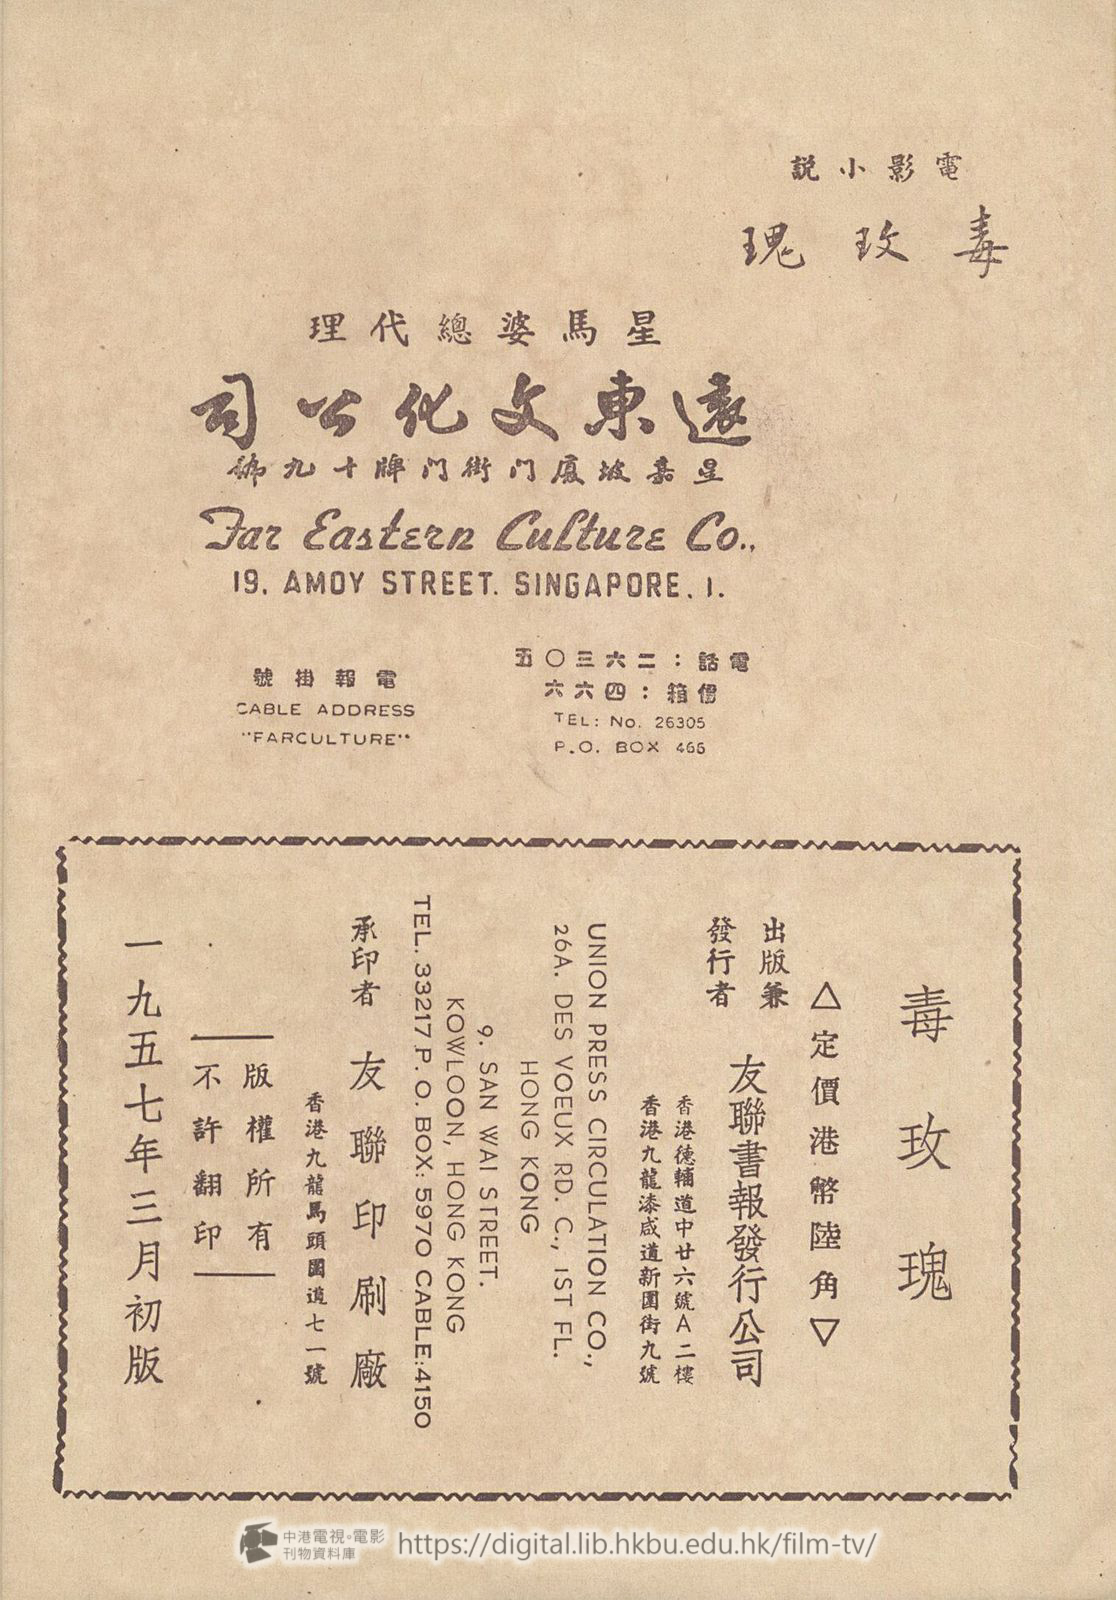 電影小說
毒玫瑰
星馬婆總代理
遠東文化公司
星嘉坡廈門街門牌十九號
Far Eastern Culture Co.,
19, AMOY STREET. SINGAPORE. 1.
電話：二六三〇五
信箱：四六六
TEL: No. 26305
P.O. BOX 466
電報掛號
CABLE ADDRESS
"FARCULTURE"
毒玫瑰
△定價港幣陸角▽
出版兼
發行者
友聯書報發行公司
香港德輔道中廿六號A二樓
香港九龍漆咸道新圍街九號
UNION PRESS CIRCULATION CO.,
26A. DES VOEUX RD. C., 1ST FL.
HONG KONG
9. SAN WAI STREET.
KOWLOON, HONG KONG
TEL. 33217 P. O. BOX: 5970 CABLE:4150
承印者
友聯印刷廠
香港九龍馬頭圍道七一號
版權所有
不許翻印
一九五七年三月初版
中港電視•電影
刊物資料庫
https://digital.lib.hkbu.edu.hk/film-tv/